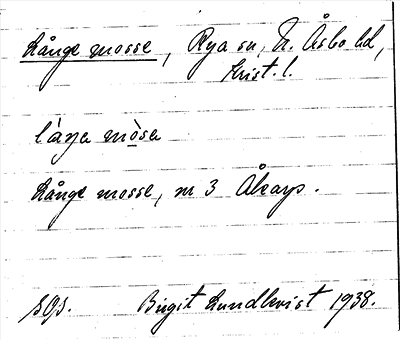 Långe mosse, Rya sn, N. Åsbo hd,
Krist. l.
låŋa mòsa
Långe mosse, nr 3 Åkarp.
Birgit Lundkvist 1938.